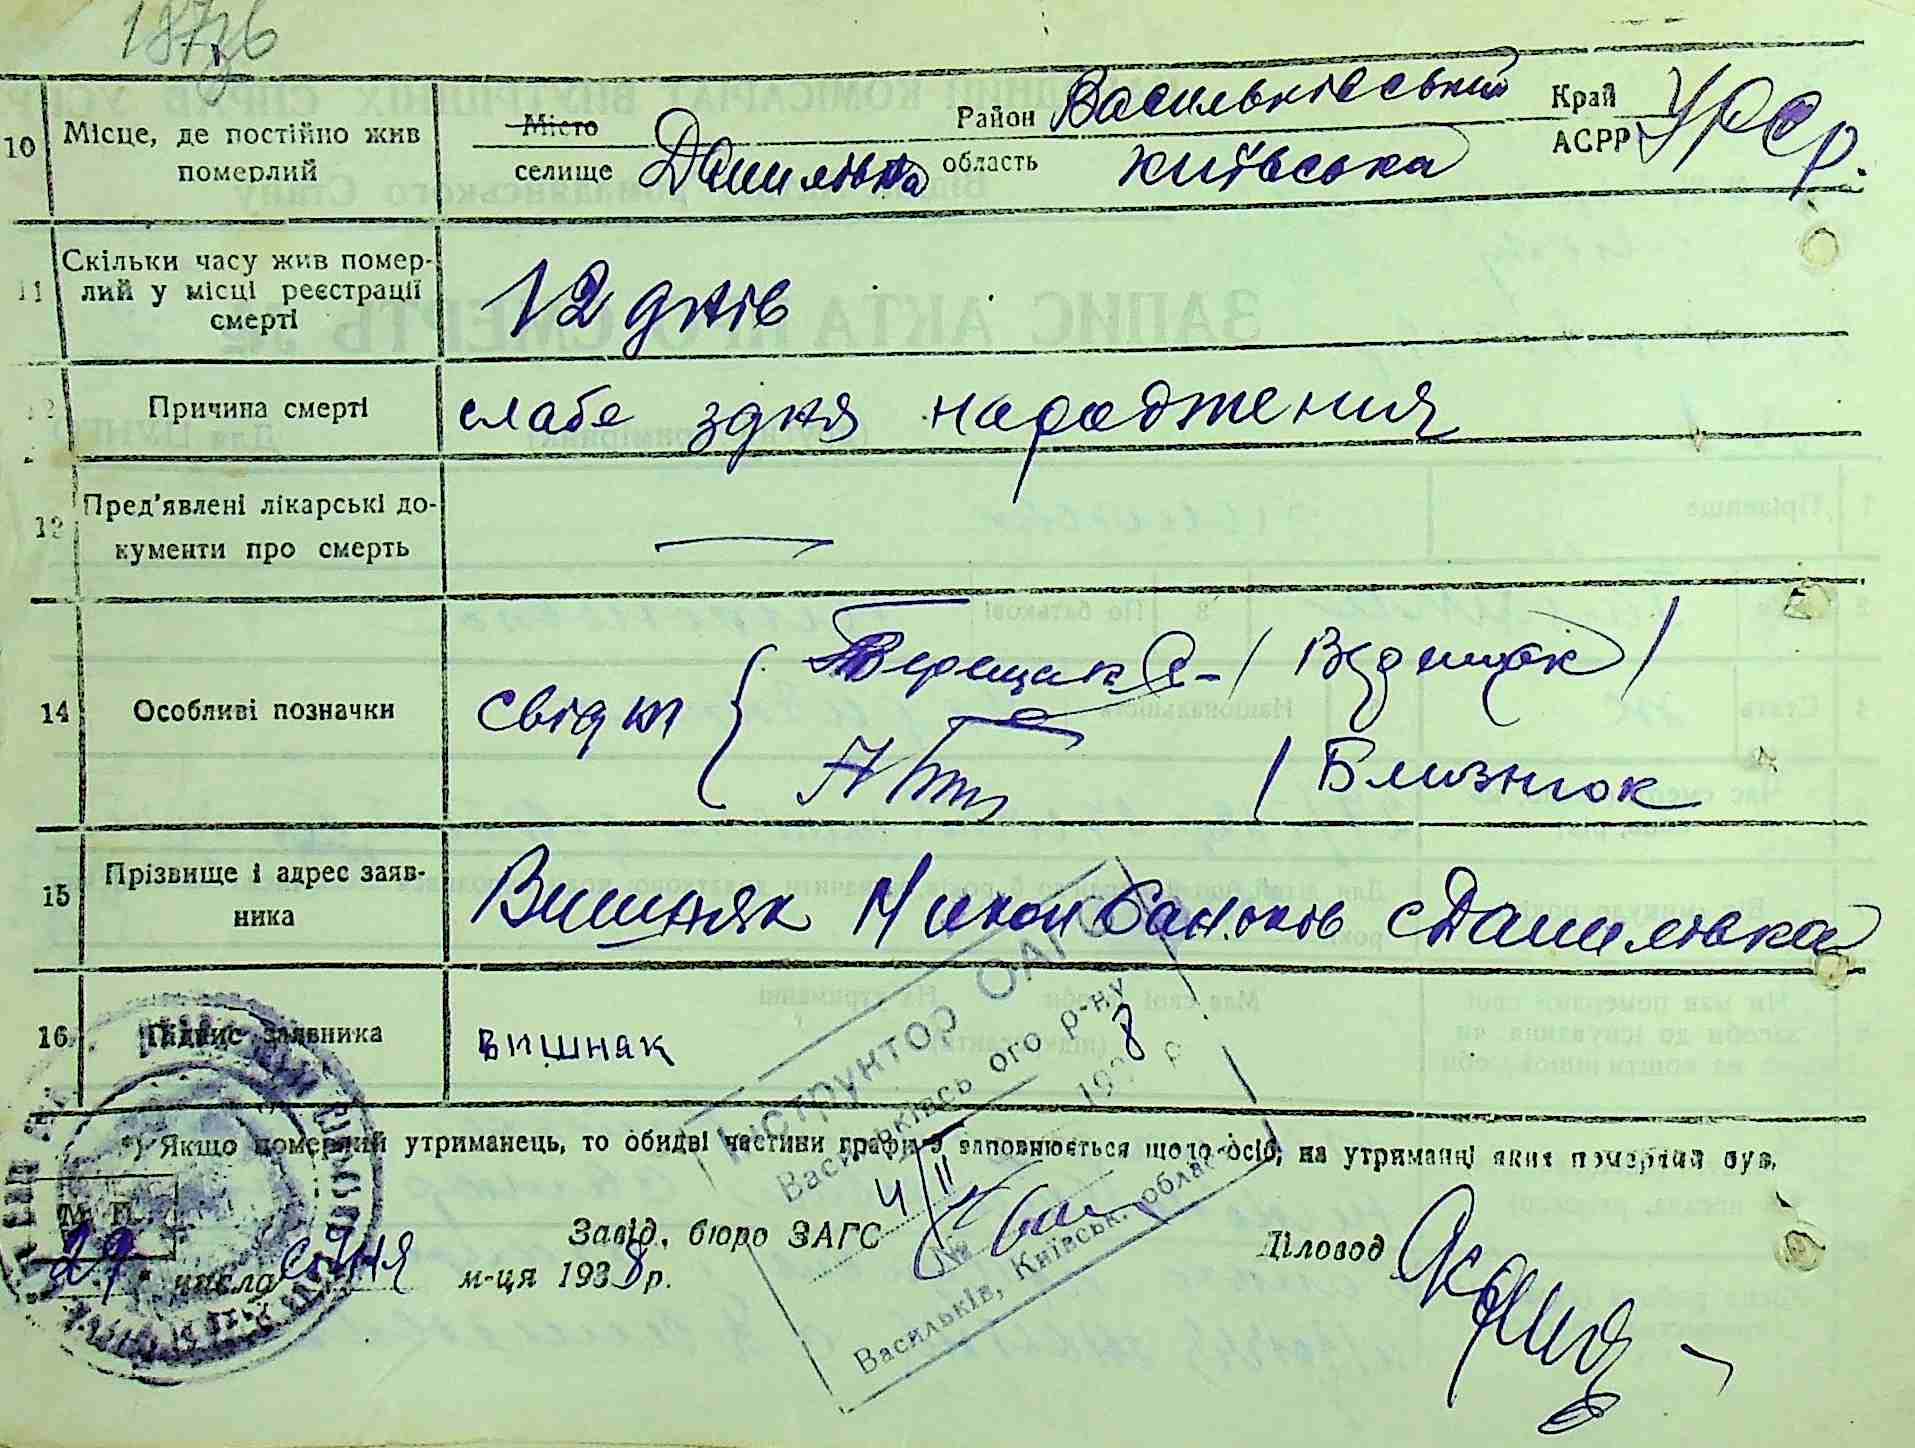 10 Місце, де постійно жив померлий
Місто
селище Данилівка
Район Васильківський
область Київська
Край
АСРР УРСР.
11 Скільки часу жив помер-
лий у місці реєстрації
смерті
12 днів
12 Причина смерті
слабе здня народження
13 Пред'явлені лікарські до-
кументи про смерть
—
14 Особливі позначки
свідки
/ Близнюк
15 Прізвище і адрес заяв-
ника
Вишняк Никон с Данилівка
16 Підпис заявника
вишнак
*) Якщо померлий утриманець, то обидві частини графи 9 заповнюється щодо осіб, на утриманні яких померлий був.
М. П.
Завід. бюро ЗАГС
Діловод
29 " числа січня м-ця 1938 р.
Інструктор ОАГС
Васильківського р-ну
4/II 1938 р.
№
Васильків, Київськ. област